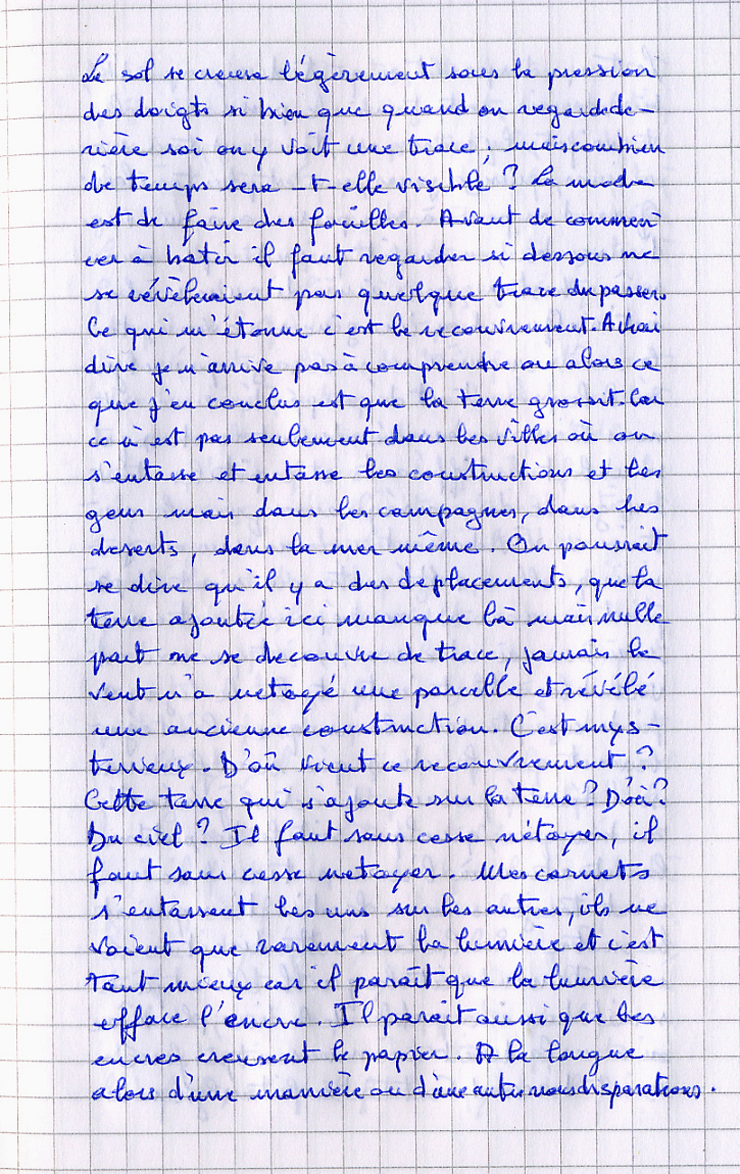 Le sol se creuse légèrement sous la pression
des doigts si bien que quand on regarde de-
rière soi on y voit une trace ; mais combien
de temps sera-t-elle visible ? La mode
est de faire des fouilles. Avant de commen-
cer à batir il faut regarder si dessous ne
se révèleraient pas quelque trace du passer.
Ce qui m'étonne c'est le recouvrement. A vrai
dire je n'arrive pas à comprendre ou alors ce
que j'en conclus est que la terre grossit. Car
ce n'est pas seulement dans les villes où on
s'entasse et entasse les constructions et les
gens mais dans les campagnes, dans les
deserts, dans la mer même. On pourrait
se dire qu'il y a des deplacements, que la
terre ajoutée ici manque là mais nulle
part ne se decouvre de trace, jamais le
vent n'a netoyé une parcelle et révélé
une ancienne construction. C'est mys-
terieux. D'où vient ce recouvrement ?
Cette terre qui s'ajoute sur la terre ? D'où ?
Du ciel ? Il faut sans cesse nétoyer, il
faut sans cesse netoyer. Mes carnets
s'entassent les uns sur les autres, ils ne
voient que rarement la lumière et c'est
tant mieux car il paraît que la lumière
efface l'encre. Il parait aussi que les
encres creusent le papier. A la longue
alors d'une manière ou d'une autre nous disparaitrons.